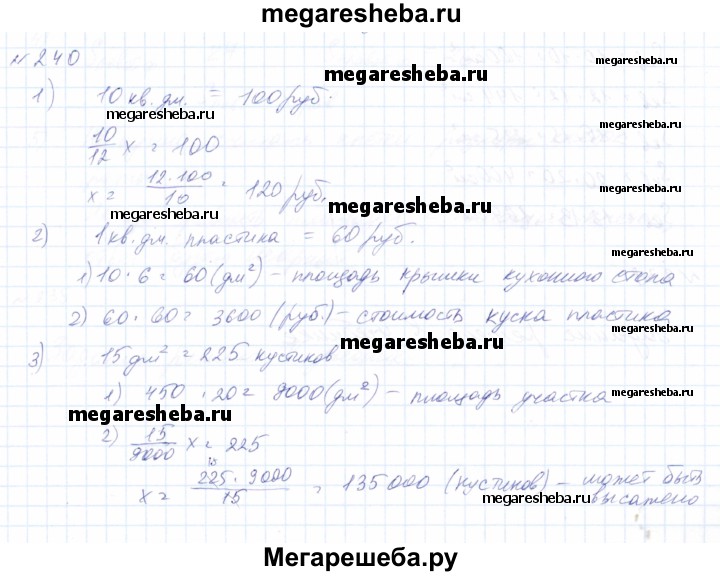 megaresheba.ru
№ 240
megaresheba.ru
megaresheba.ru
1) 10 кв. дм. = 100 руб.
megaresheba.ru
10/12 x = 100
x = 12·100/10 = 120 руб.
megaresheba.ru
megaresheba.ru
2) 1 кв. дм. пластика = 60 руб.
megaresheba.ru
1) 10·6 = 60 (дм²) – площадь крышки кухонного стола
2) 60·60 = 3600 (руб.) – стоимость куска пластика
megaresheba.ru
megaresheba.ru
3) 15 дм² = 225 кустиков
1) 450·20 = 9000 (дм²) – площадь участка
megaresheba.ru
megaresheba.ru
2) 15/9000 x = 225
x = 225·9000/15 = 135000 (кустиков) – может быть
высажено
megaresheba.ru
Мегарешеба.ру